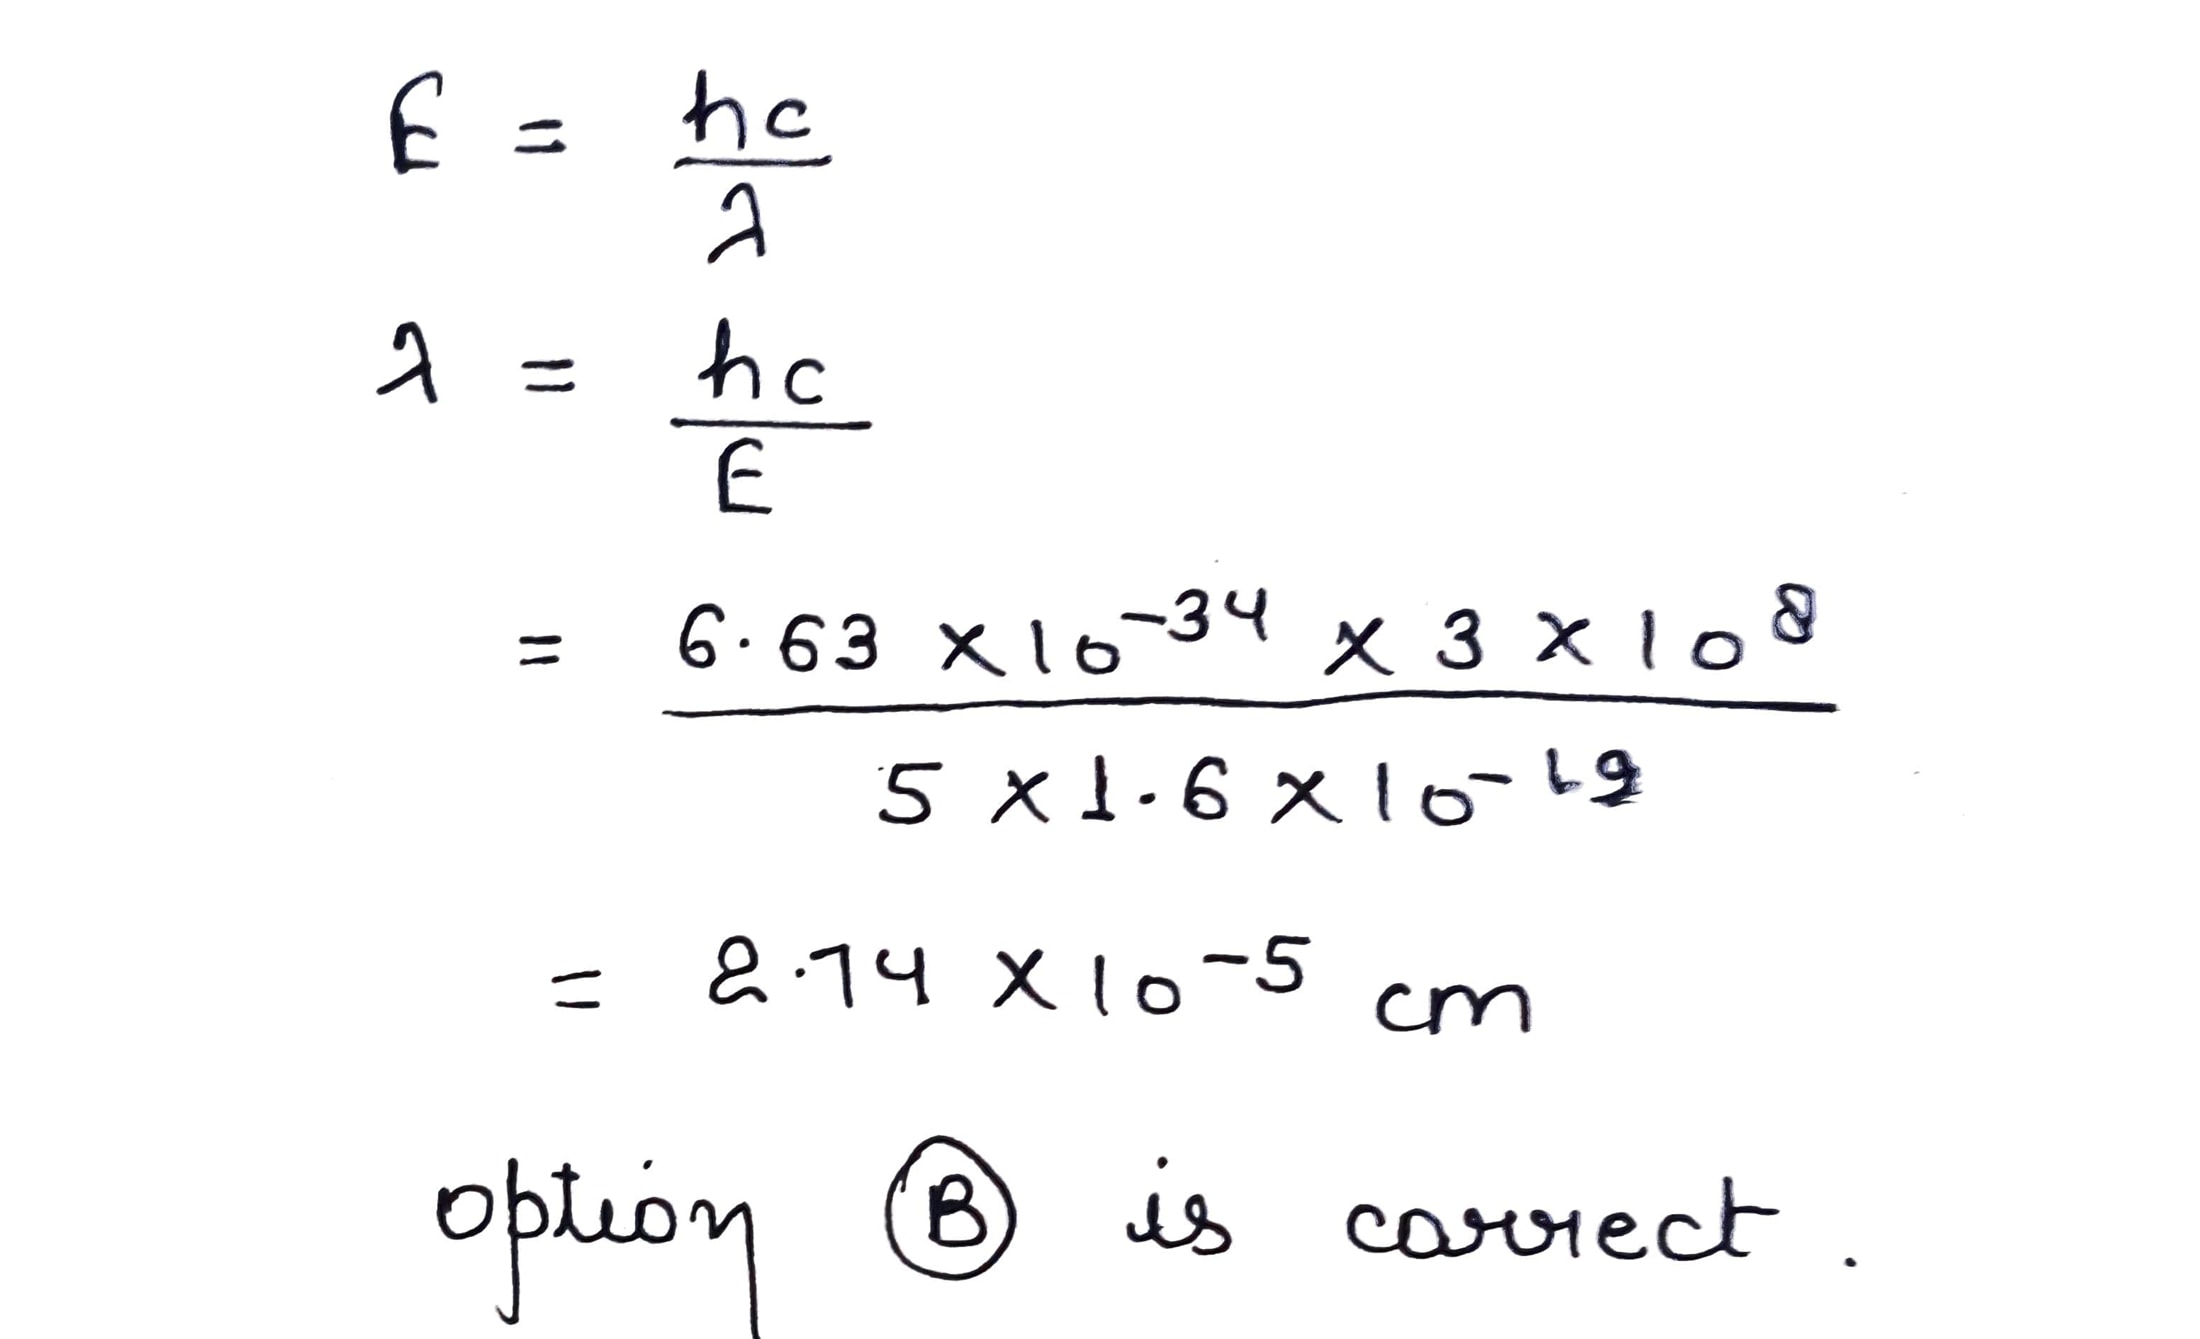 E = hc
λ
λ = hc
E
= 6.63 × 10⁻³⁴ × 3 × 10⁸
5 × 1.6 × 10⁻¹⁹
= 2.74 × 10⁻⁵ cm
option B is correct.